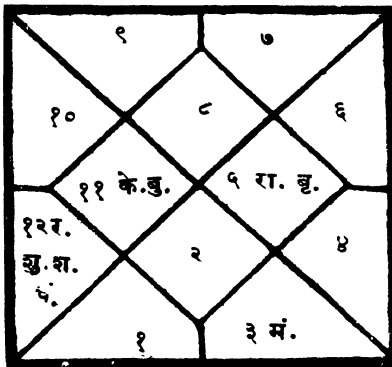 ९ ७
१० ८ ६
११ के.बु. ५ रा. बृ.
१२र.
शु. श.
चं.
२ ४
१ ३ मं.